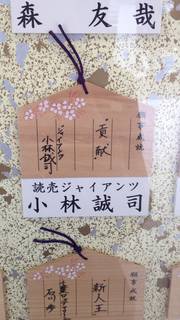 森 友哉
願事成就
貢献
ジャイアンツ
小林誠司
読売ジャイアンツ
小林誠司
願事成就
新人王